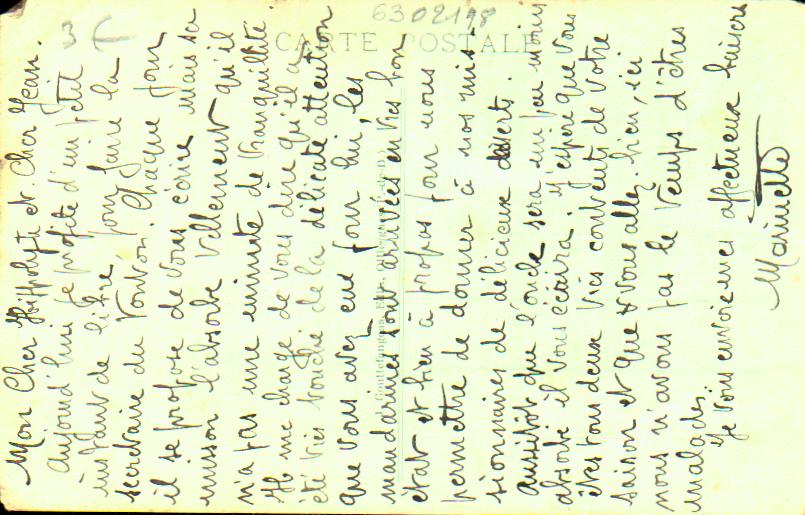 Mon Cher Hippolyte et Cher Jean.
Aujourd'hui je profite d'un petit
instant de libre pour faire la
secrétaire du Tonton. Chaque jour
il se propose de vous écrire mais sa
mission l'absorbe tellement qu'il
n'a pas une minute de tranquillité.
Il me charge de vous dire qu'il a
été très touché de la délicate attention
que vous avez eue pour lui, les
mandarines sont arrivées en très bon
état et bien à propos pour nous
permettre de donner à nos mis-
sionnaires de délicieux déserts.
Aussitôt que l'oncle sera un peu moins
absorbé il vous écrira. J'espère que vous
êtes tous deux très contents de votre
saison et que vous allez bien, ici
nous n'avons pas le temps d'êtres
malades.
Je vous envoie mes affectueux baisers
Marinette
CARTE POSTALE
6302198
3 €